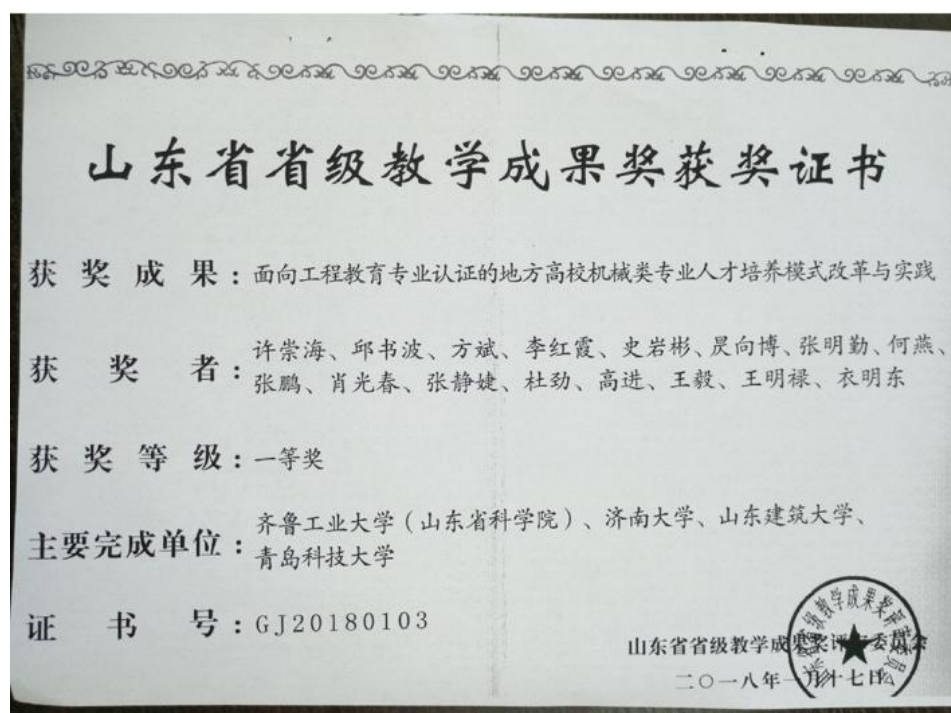 山东省省级教学成果奖获奖证书
获奖成果：面向工程教育专业认证的地方高校机械类专业人才培养模式改革与实践
获奖者：许崇海、邱书波、方斌、李红霞、史岩彬、昃向博、张明勤、何燕、
张鹏、肖光春、张静婕、杜劲、高进、王毅、王明禄、衣明东
获奖等级：一等奖
主要完成单位：齐鲁工业大学（山东省科学院）、济南大学、山东建筑大学、
青岛科技大学
证书号：GJ20180103
山东省省级教学成果奖评审委员会
二〇一八年一月十七日